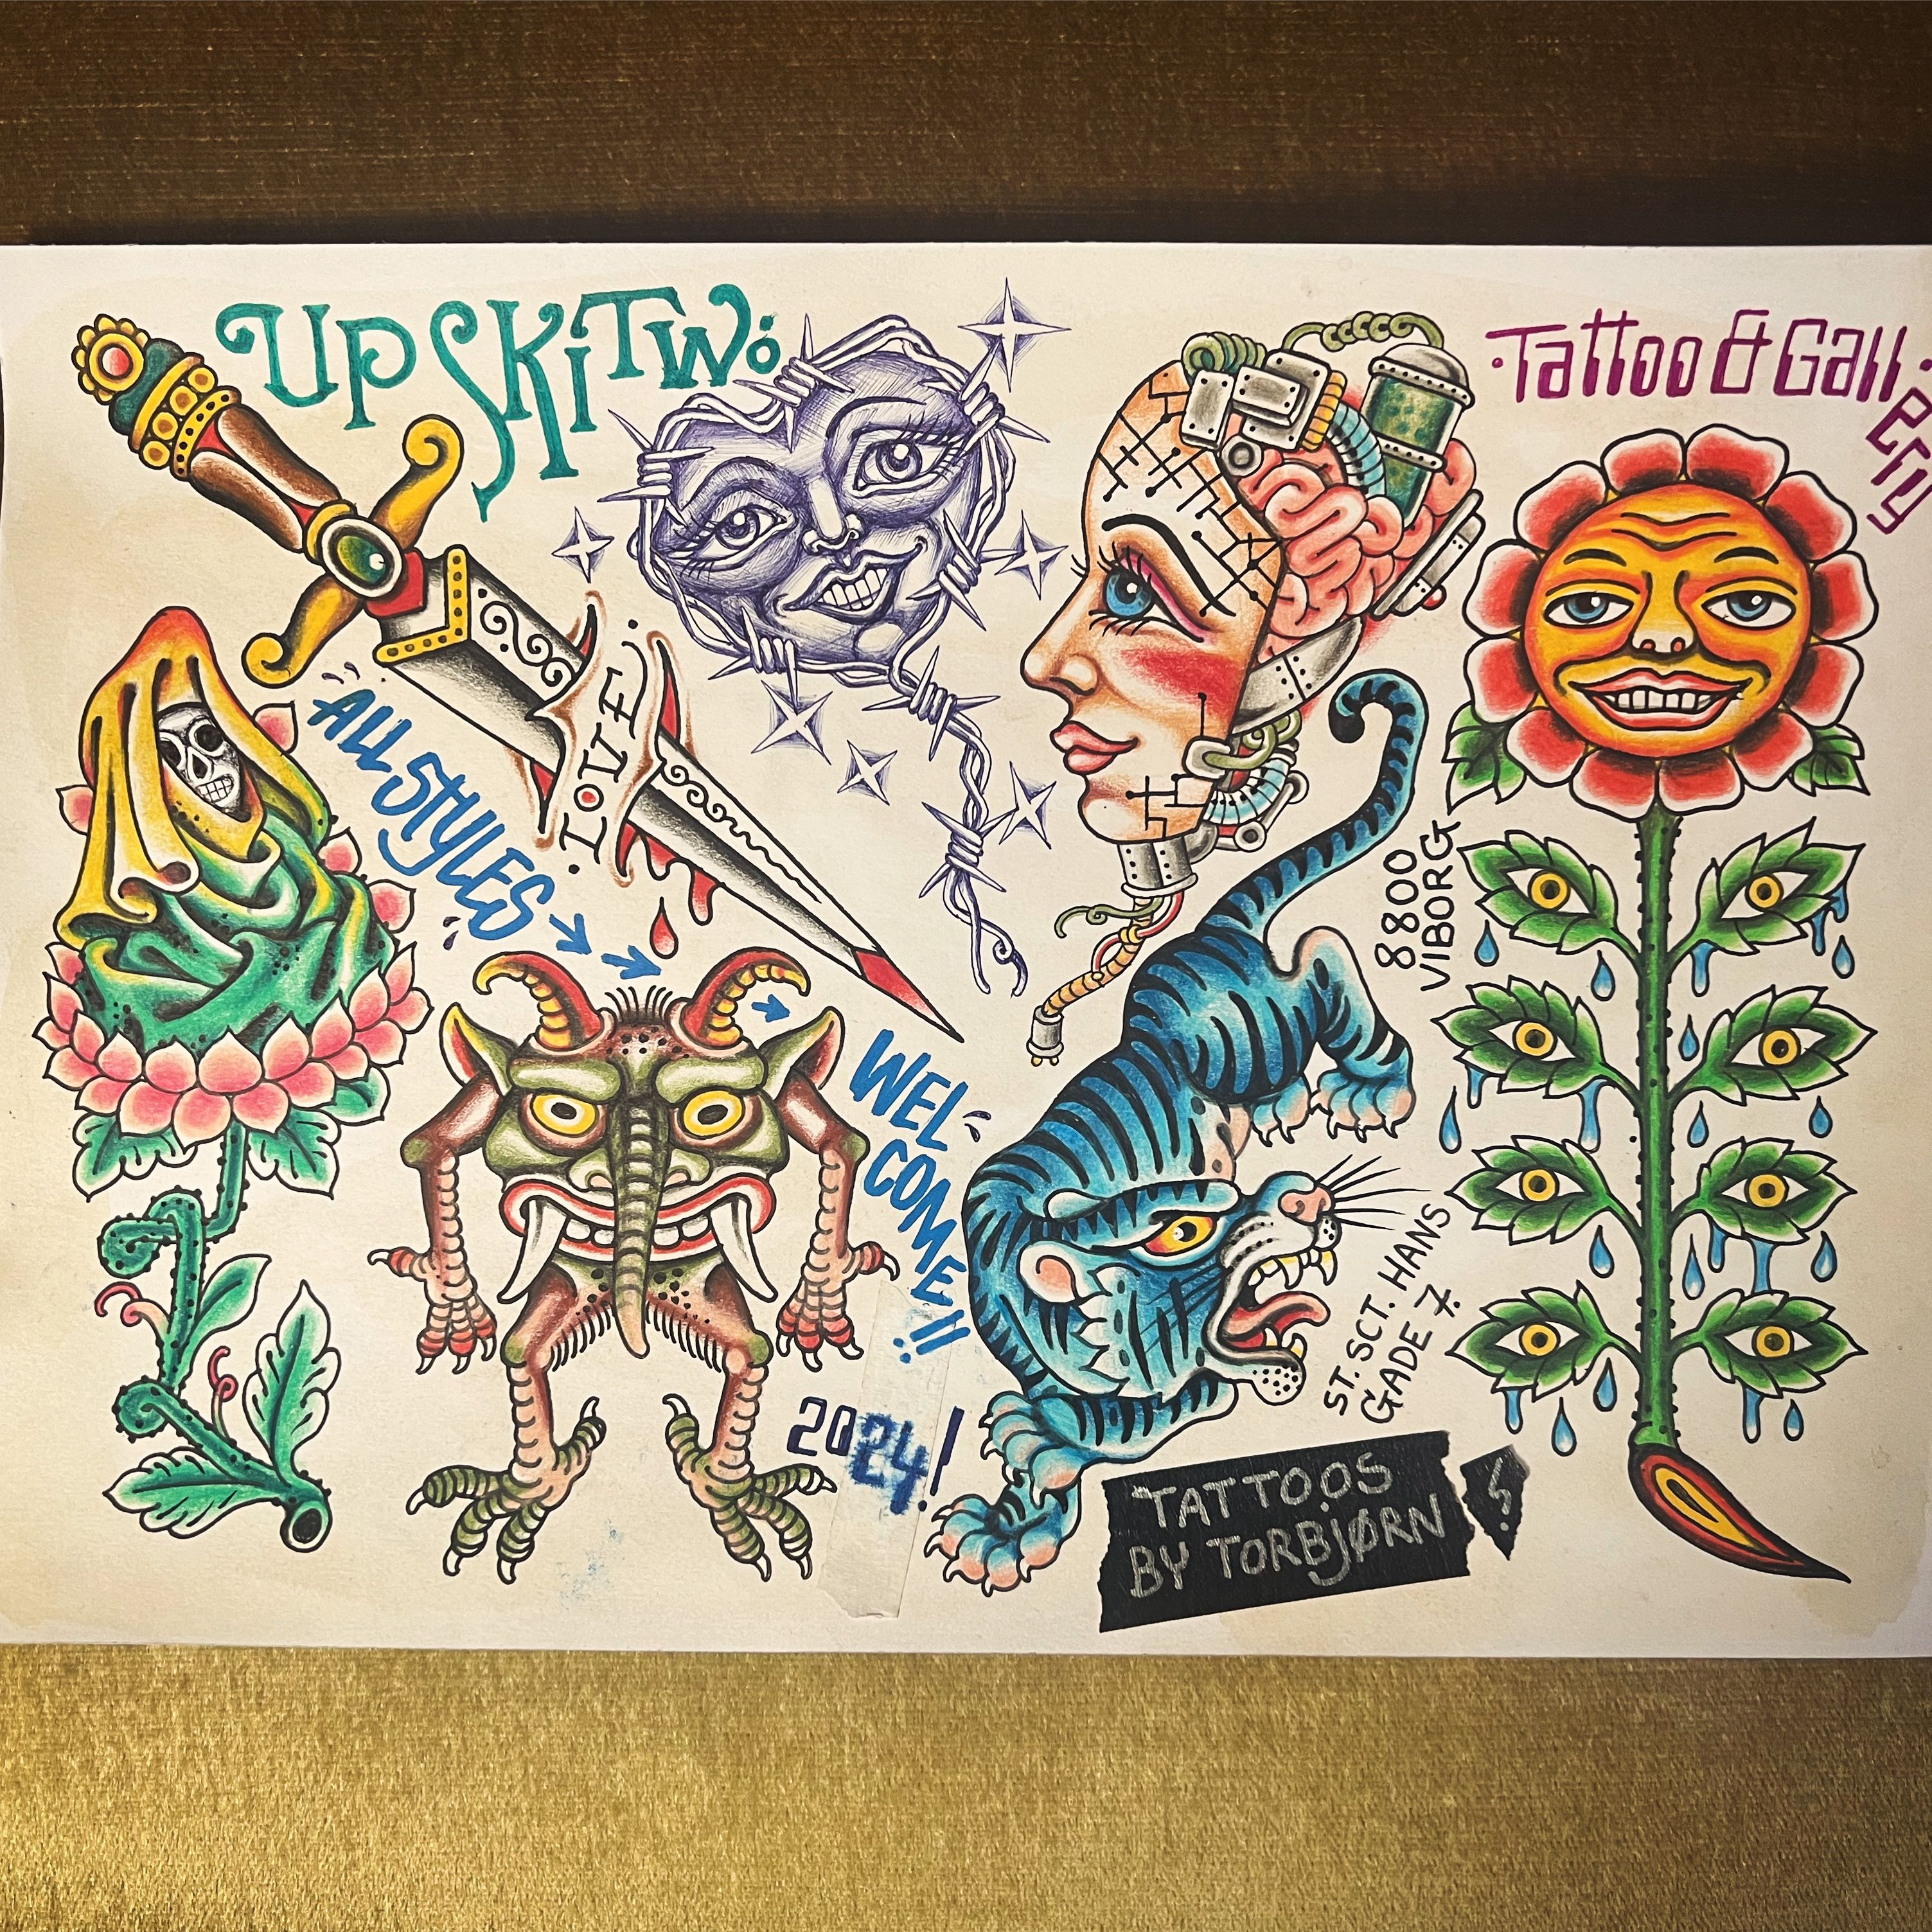 UPSKiTWO
Tattoo & Gallery
LOVE
ALL STYLES
WEL
COME!!
8800
VIBORG
ST. SCT. HANS
GADE 7.
2024!
TATTOOS
BY TORBJØRN